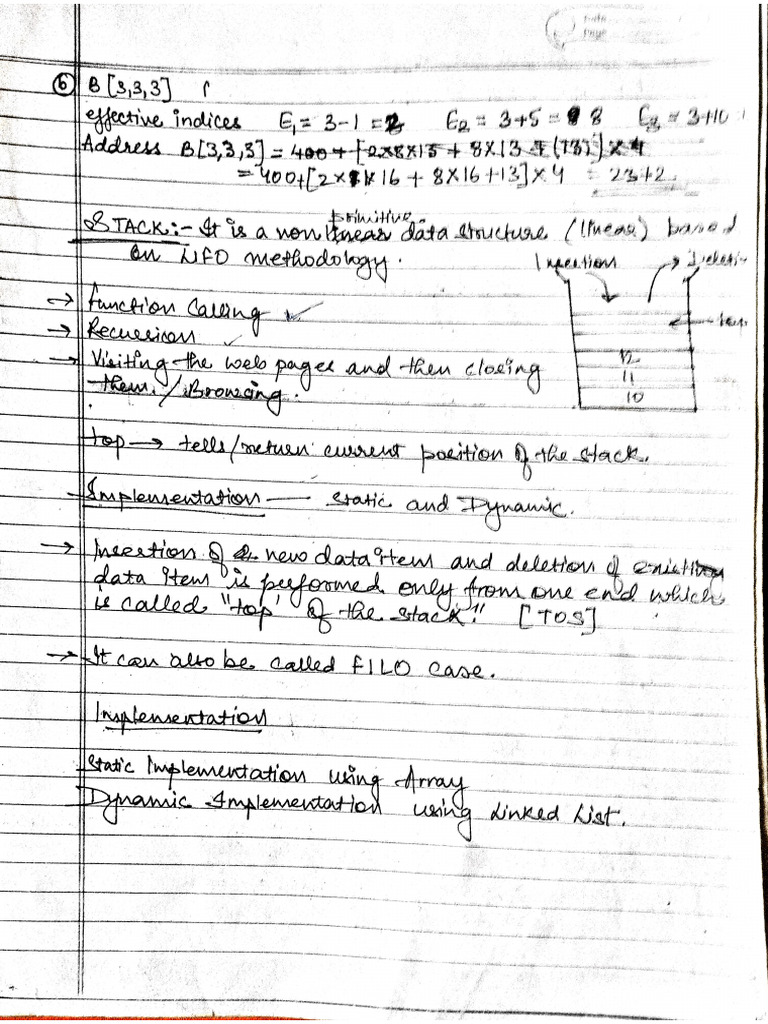 Date
Page
⑥ B[3,3,3]
effective indices E₁ = 3-1 = 2 E₂ = 3+5 = 8 E₃ = 3+10
Address B[3,3,3] = 400 + [2x8x15 + 8x13 + (13)] x 4
= 400+[2x 16 + 8x16+13]x4 = 23+2
STACK:- It is a non primitive linear data structure (linear) based
on LIFO methodology.
Insertion
→ Function Calling ✓
→ Recursion ✓
→ Visiting the web pages and then closing
them. / Browsing.
12
11
10
top → tells/return current position of the stack.
→ Implementation — Static and Dynamic.
→ Insertion of new data item and deletion of existing
data item is performed only from one end which
is called "top' of the stack." [TOS]
→ It can also be called FILO case.
Implementation
Static Implementation using Array
Dynamic Implementation using Linked List.